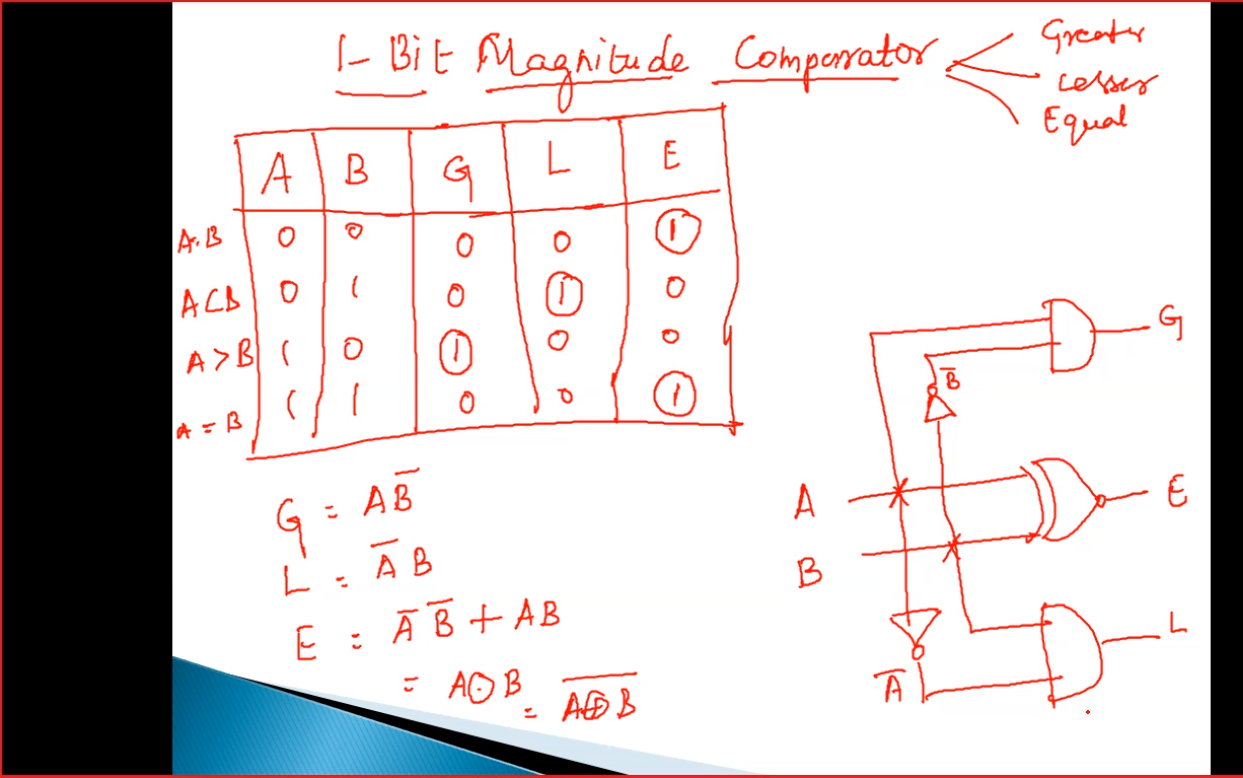 1-Bit Magnitude Comparator
Greater
Lesser
Equal
A B G L E
A=B 0 0 0 0 1
A<B 0 1 0 1 0
A>B 1 0 1 0 0
A=B 1 1 0 0 1
G = AB̅
L = A̅B
E = A̅ B̅ + AB
= A⊙B = A̅⊕̅B̅
G
B̅
A
E
B
L
A̅